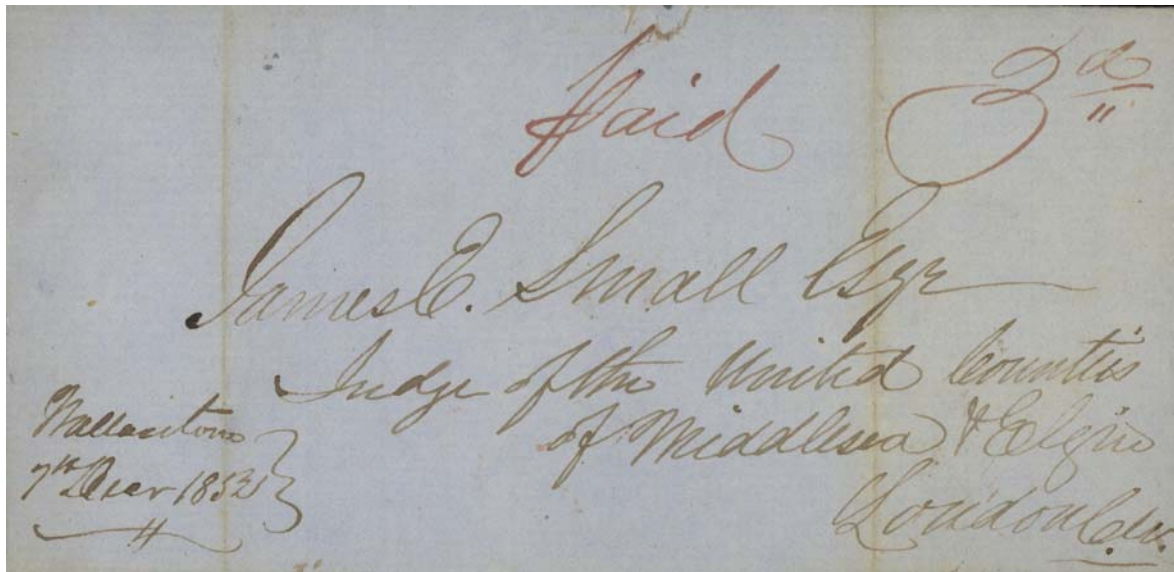 Paid 3d
James E. Small Esqr
Judge of the United Counties
of Middlesex & Elgin
London C.W.
Wallacetown
7th Decr 1852